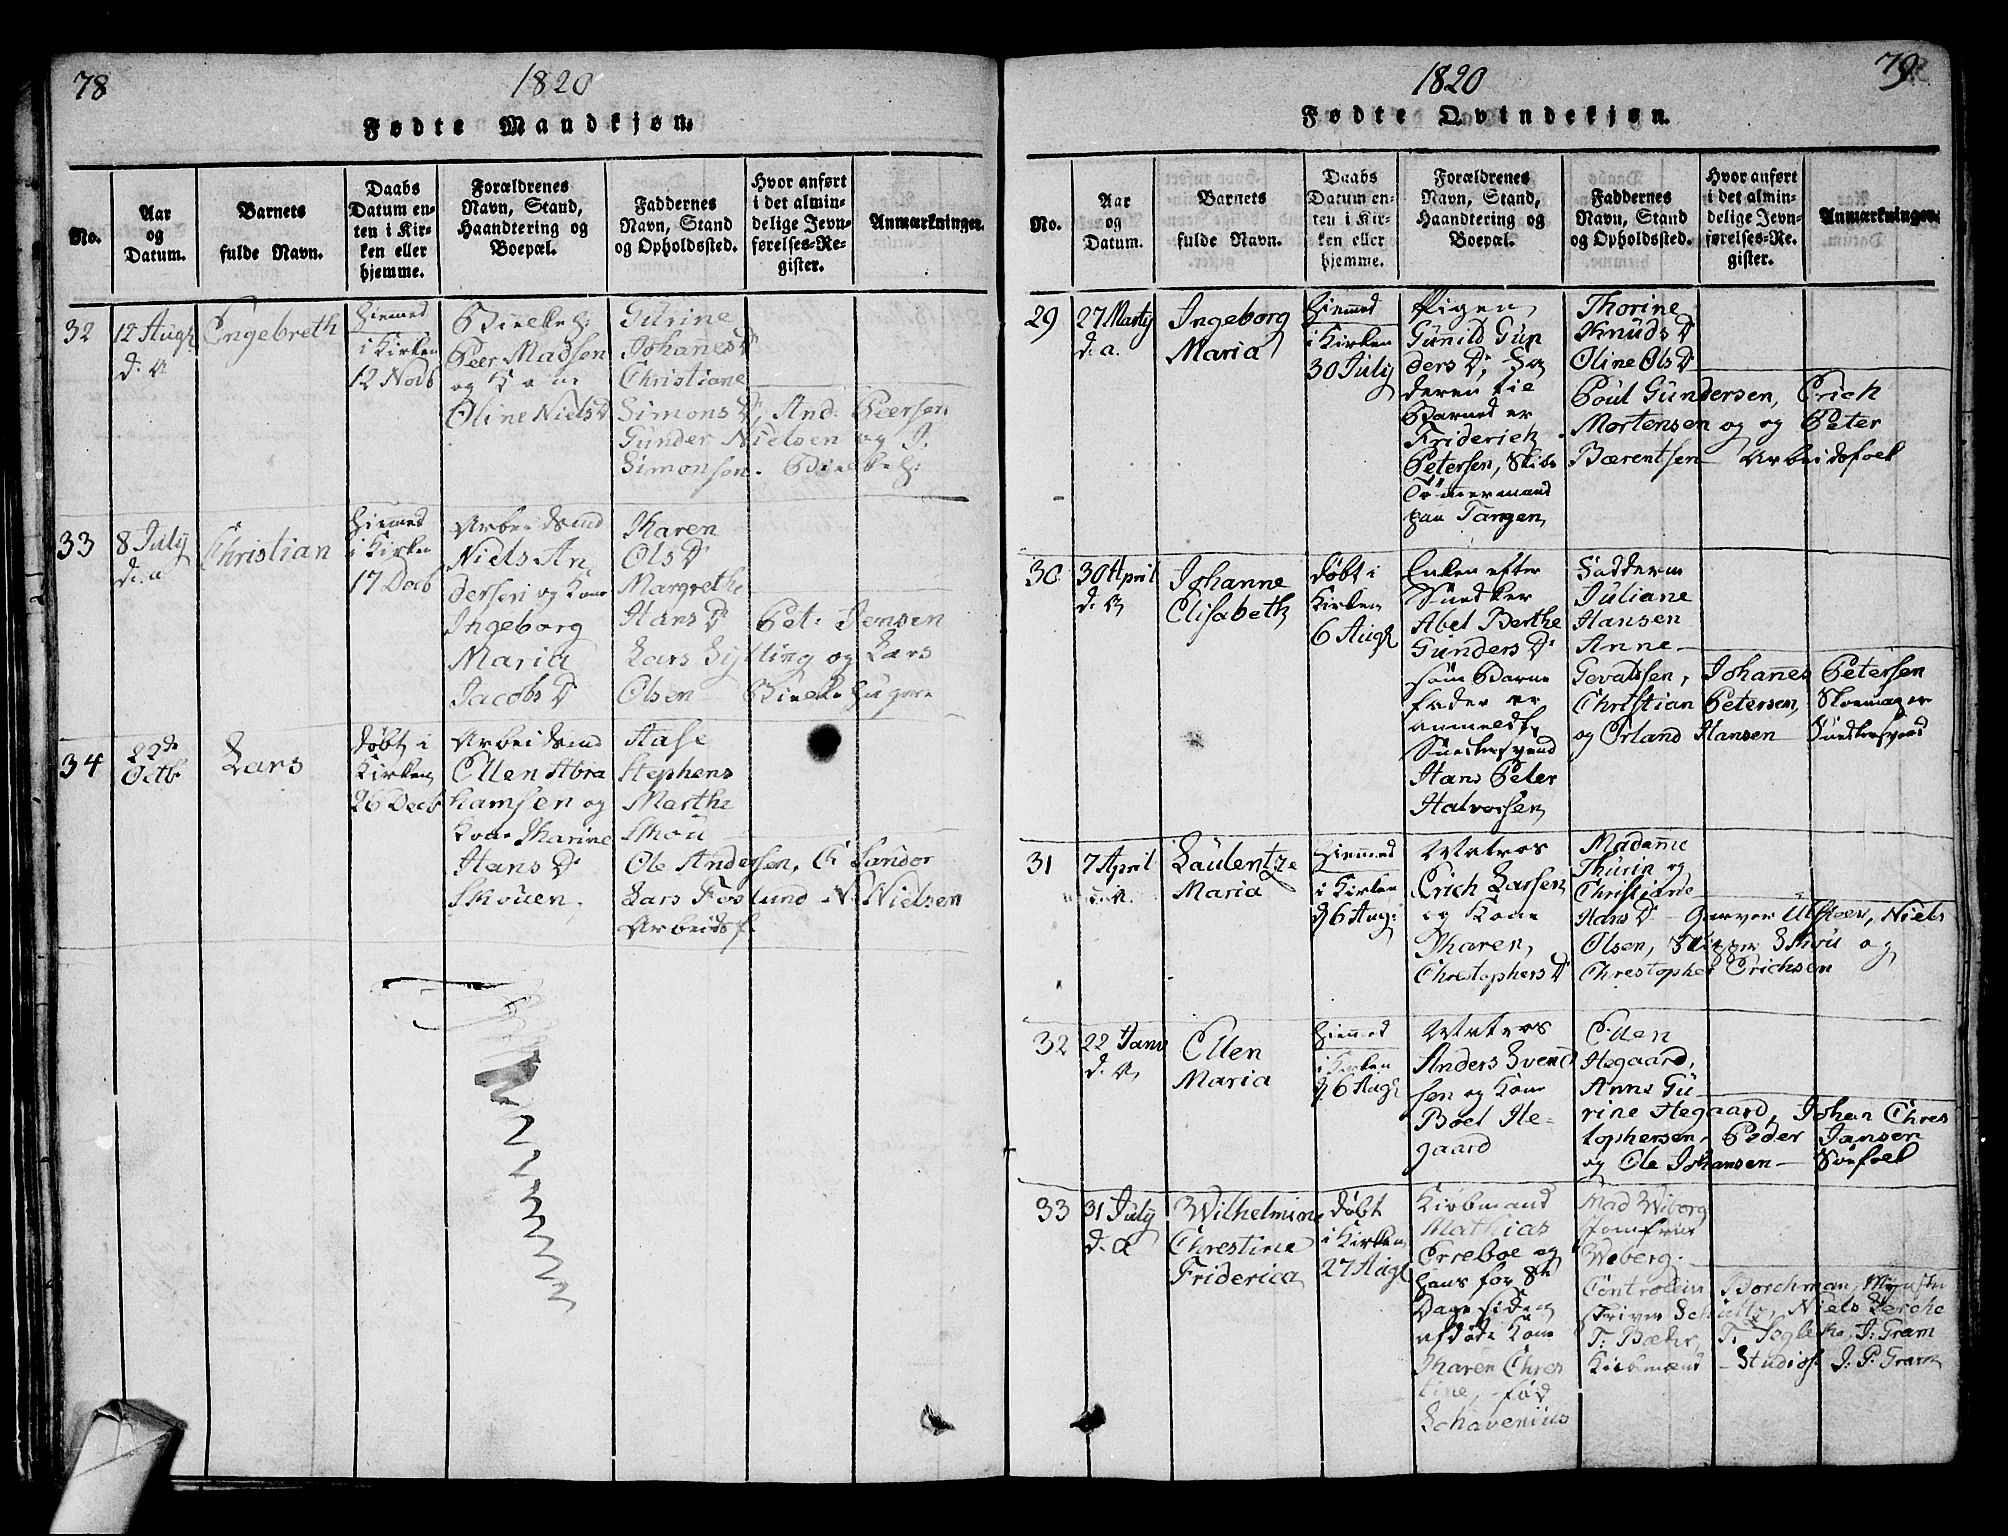 78
1820
Fødte Mandkjøn.
No.
Aar
og
Datum.
Barnets
fulde Navn.
Daabs
Datum en-
ten i Kir-
ken eller
hjemme.
Forældrenes
Navn, Stand,
Haandtering og
Boepæl.
Faddernes
Navn, Stand
og Opholdssted.
Hvor anført
i det almin-
delige Jevn-
førelses-Re-
gister.
Anmærkninger.
32
12 Aug
d. a
Engebreth
Hiemed
i Kirken
12 Novb
Peer Madsen
og Kone
Oline Niels D
Gurine
Johannes D
Christiane
Simons D, And: Peersen
Gunder Nielsen og J.
Simonsen.
33
8 July
d. a
Christian
Hiemed
i Kirken
17 Decb
Arbeidsmd
Niels An
dersen og Kone
Ingeborg
Maria
Jacobs D
Karen
Ols D
Margrethe
Hans D Pet: Jensen
Lars Sylling og Lars
Olsen
34
22de
Octb
Lars
døbt i
Kirken
26 Decb
Arbeidsmd
Ellen Abra
hamsen og
Kone Karine
Hans D
Skouen
Aase
Stephens
Marthe
Skou
Ole Andersen,
Lars Foslund N Nielsen
Arbeidsf.
79
1820
Fødte Qvindekjøn.
No.
Aar
og
Datum.
Barnets
fulde Navn.
Daabs
Datum en-
ten i Kir-
ken eller
hjemme.
Forældrenes
Navn, Stand,
Haandtering og
Boepæl.
Faddernes
Navn, Stand
og Opholdssted.
Hvor anført
i det almin-
delige Jevn-
førelses-Re-
gister.
Anmærkninger.
29
27 Martj
d. a.
Ingeborg
Maria
Hiemed
i Kirken
30 July
Pigen
Gunild Gun
ders D, Fa
deren til
Barnet er
Friderich
Petersen, Skibs
Tømmermand
paa Tangen
Thorine
Knuds D
Oline Ols D
Poul Gundersen, Erich
Mortensen og og Peter
Bærentsen Arbeidsfolk
30
30 April
d. A
Johanne
Elisabeth
døbt i
Kirken
6 Aug
Enken efter
Snedker
Abel Berthe
Gunders D
som Barne
fader er
anmeldt
Snedkersvend
Hans Peter
Halvorsen
Fadderne
Juliane
Hansen
Anne
Gevaldsen, Johannes Petersen
Christian Petersen, Skoemager
og Erland Hansen Snedkersvend
31
7 April
d. A.
Laulentze
Maria
Hiemmed
i Kirken
d 6 Aug:
Matros
Erich Larsen
og Kone
Karen
Chrestophers D
Madame
Thurin og
Christiane
Hans D Garver Ulfsteen, Niels
Olsen, Skipper Skou og
Chrestopher Erichsen
32
22 Janv
d. A
Ellen
Maria
Hiemmed
i Kirken
d 6 Aug
Matros
Anders Svend
sen og Kone
Boel He-
gaard
Ellen
Hegaard,
Anne Gu
rine Hegaard, Johan Chres
tophersen, Peder Jansen
og Ole Johansen Søefolk
33
31 July
d. a
Wilhelmine
Chrestine
Friderica
døbt
i Kirken
27 Aug
Kiøbmand
Mathias
Erreboe og
hans for 8te
Dage siden
afdøde Kone
Karen Chres
tine, fød
Schavenius
Mad Wiborg
Jomfrue
Weberg.
Controleur Borchman,
skriver Schultz, Niels Lerche
T: Bæker, J: Gram
Kiøbmænd Studios J. P. Gram